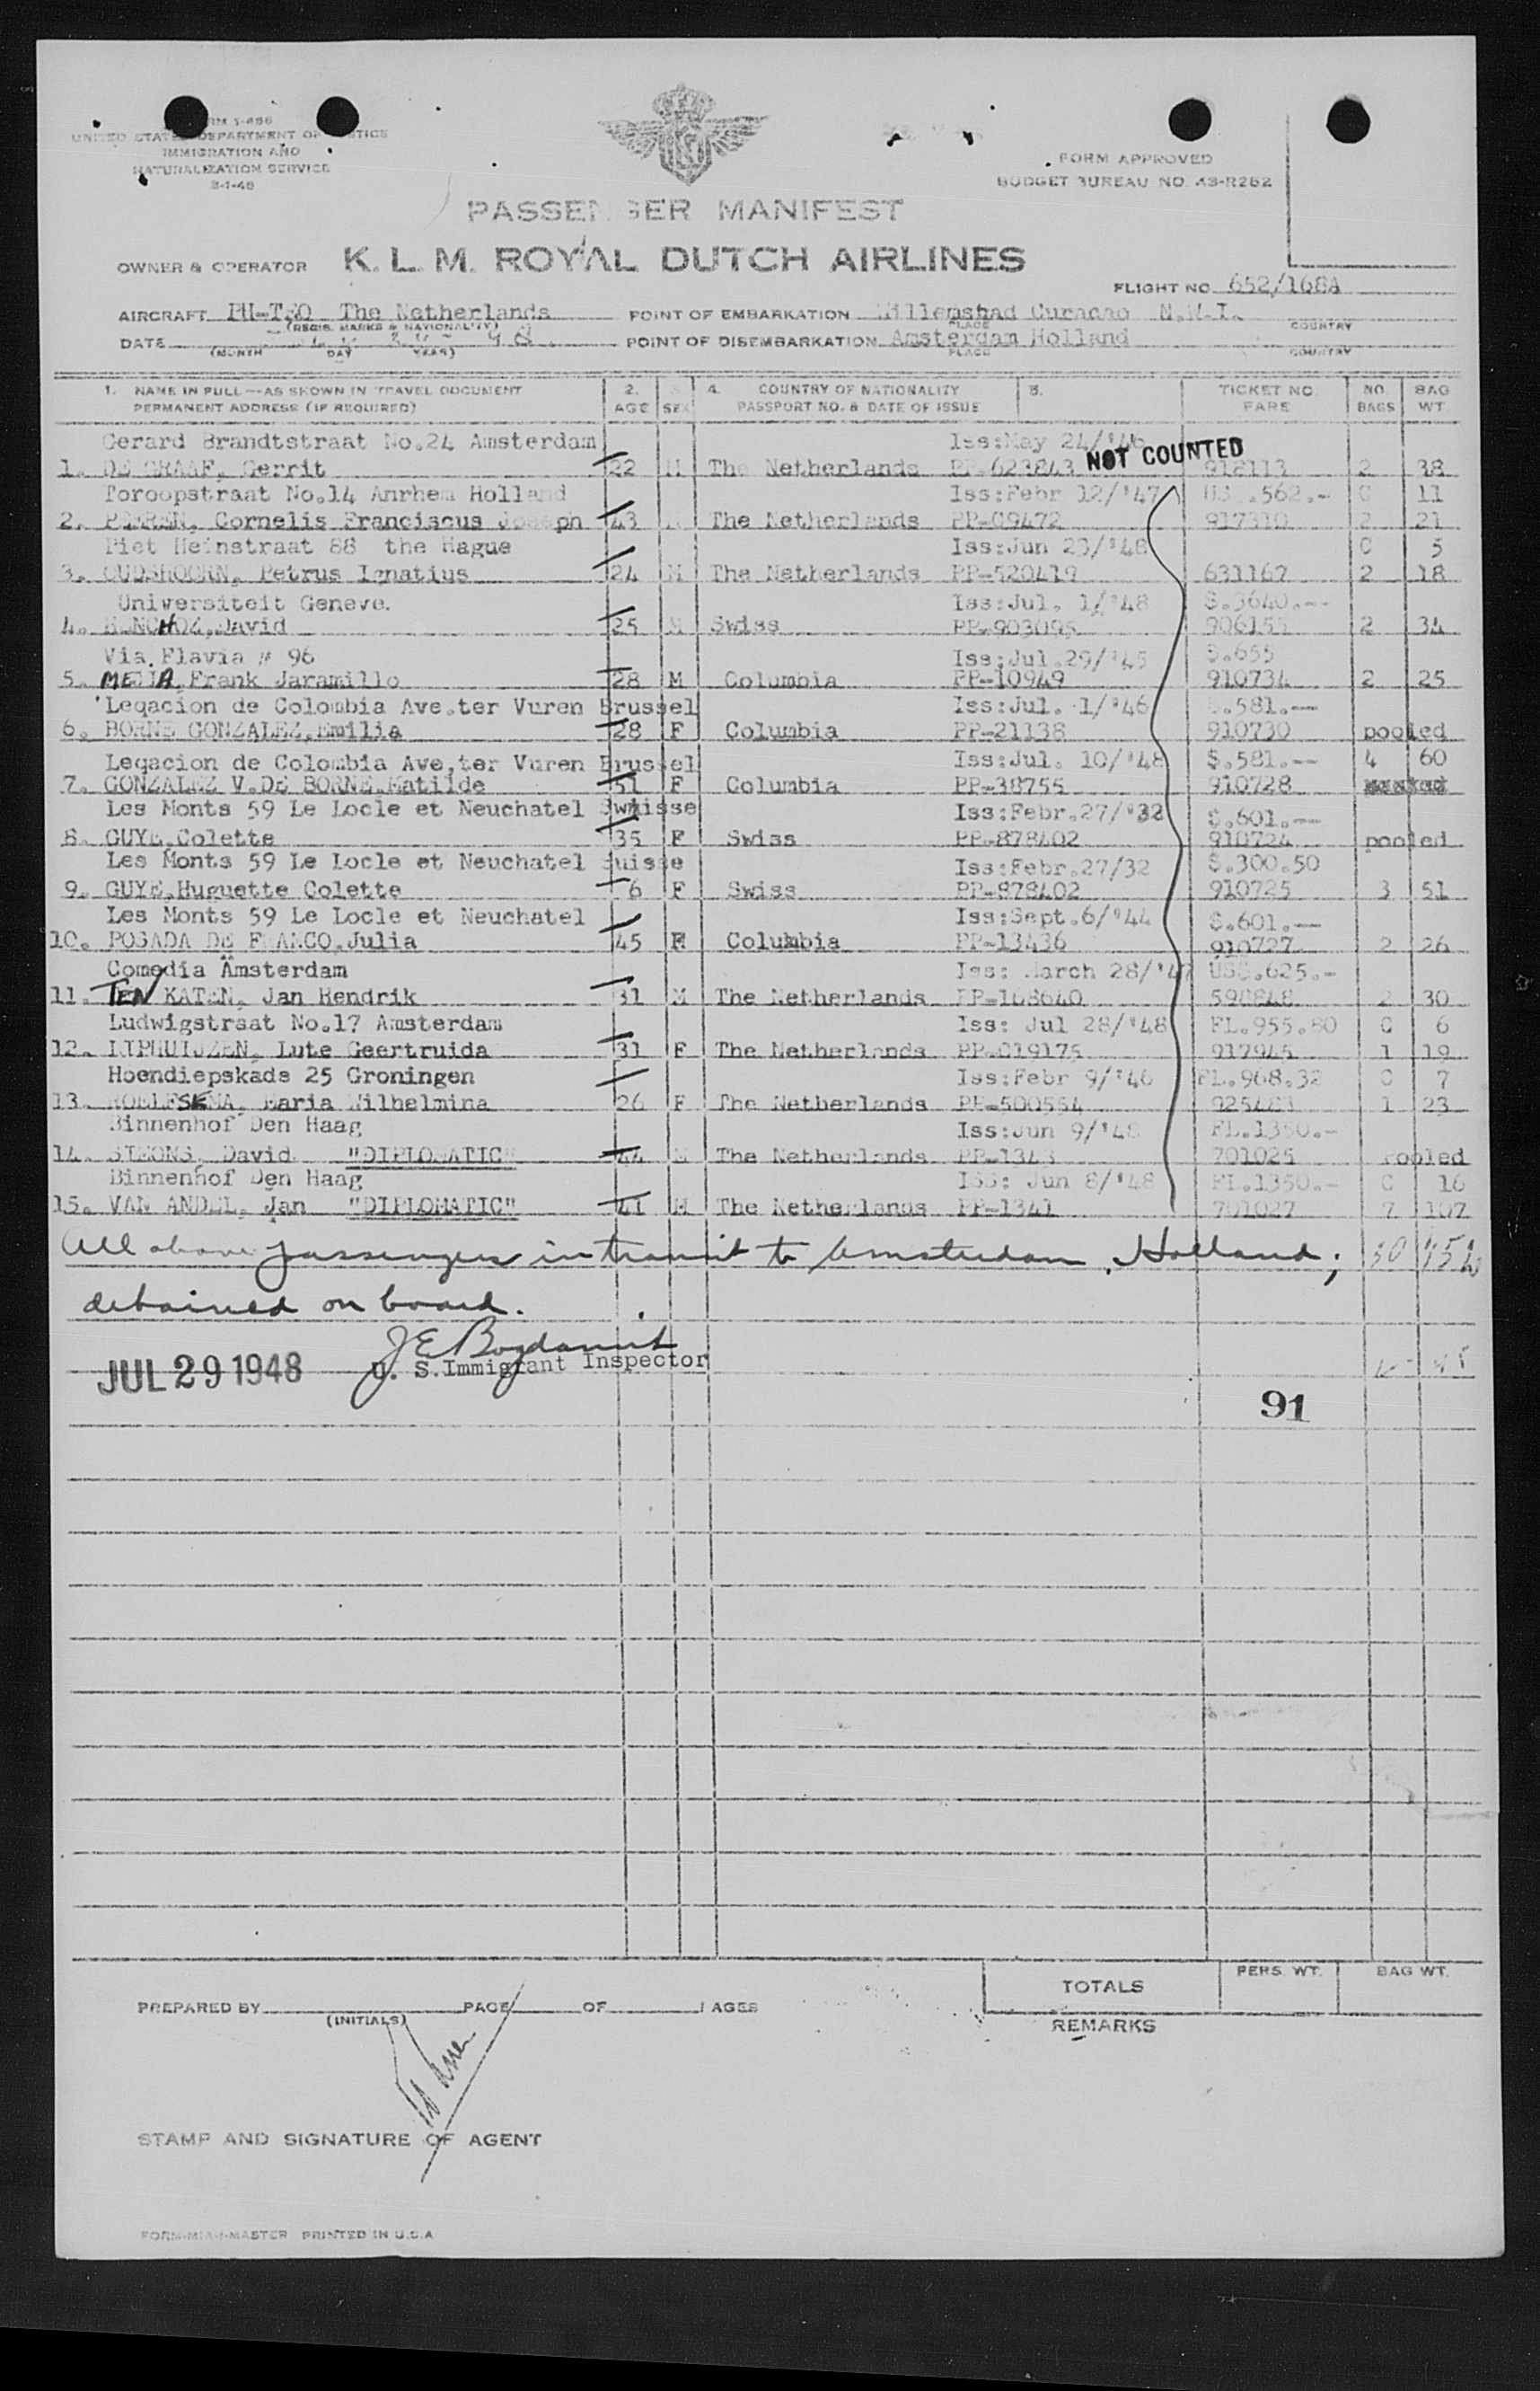 FORM I-466
UNITED STATES DEPARTMENT OF JUSTICE
IMMIGRATION AND
NATURALIZATION SERVICE
FORM APPROVED
BUDGET BUREAU NO. 43-R282
PASSENGER MANIFEST
OWNER & OPERATOR K. L. M. ROYAL DUTCH AIRLINES
FLIGHT NO. 652/168A
AIRCRAFT The Netherlands POINT OF EMBARKATION Willemstad Curacao N.W.I.
(REGIS. MARKS & NATIONALITY) PLACE COUNTRY
DATE 48 POINT OF DISEMBARKATION Amsterdam Holland
(MONTH DAY YEAR) PLACE COUNTRY
1. NAME IN FULL—AS SHOWN IN TRAVEL DOCUMENT 2. 4. COUNTRY OF NATIONALITY 5. TICKET NO. NO. BAG
PERMANENT ADDRESS (IF REQUIRED) AGE SEX PASSPORT NO. & DATE OF ISSUE FARE BAGS WT.
Gerard Brandtstraat No.24 Amsterdam Iss:May 24/'46
NOT COUNTED
1. DE GRAAF, Gerrit 22 M The Netherlands PP-623843 918113 2 38
Toroopstraat No.14 Anrhem Holland Iss:Febr 12/'47 US .562.- C 11
2. Cornelis Franciscus Joseph 43 The Netherlands PP-09472 917310 2 21
Piet Heinstraat 88 the Hague Iss:Jun 23/'48 C 5
3. OUDSHOORN, Petrus Ignatius 24 M The Netherlands PP-520419 631167 2 18
Universiteit Geneve. Iss:Jul. 1/'48 $.3640.--
4. David 25 M Swiss PP-903095 906155 2 34
Via Flavia # 96 Iss:Jul.29/'45 $.655
5. MEJIA, Frank Jaramillo 28 M Columbia PP-10949 910734 2 25
Leqacion de Colombia Ave.ter Vuren Brussel Iss:Jul. 1/'46 $.581.--
6. BORNE GONZALEZ, Emilia 28 F Columbia PP-21138 910730 pooled
Leqacion de Colombia Ave,ter Vuren Brussel Iss:Jul. 10/'48 $.581.-- 4 60
7. GONZALEZ V.DE BORNE,Matilde 51 F Columbia PP-38755 910728
Les Monts 59 Le Locle et Neuchatel Swuisse Iss:Febr.27/'32 $.601.--
8. GUYE,Colette 35 F Swiss PP-878402 910724 pooled
Les Monts 59 Le Locle et Neuchatel Suisse Iss:Febr.27/32 $.300.50
9. GUYE,Huguette Colette 6 F Swiss PP-878402 910725 3 51
Les Monts 59 Le Locle et Neuchatel Iss:Sept.6/'44 $.601.--
10. POSADA DE FRANCO,Julia 45 F Columbia PP-13436 910727 2 26
Comedia Amsterdam Iss: March 28/'47 US$.625.-
11. TEN KATEN, Jan Hendrik 31 M The Netherlands PP-168640 598848 2 30
Ludwigstraat No.17 Amsterdam Iss: Jul 28/'48 FL.955.80 C 6
12. Lute Geertruida 31 F The Netherlands PP-019175 917945 1 19
Hoendiepskade 25 Groningen Iss:Febr 9/'46 FL.968.32 C 7
13. ROELFSEMA, Maria Wilhelmina 26 F The Netherlands PP-500554 925483 1 23
Binnenhof Den Haag Iss:Jun 9/'48 FL.1350.-
14. SIMONS, David "DIPLOMATIC" 44 M The Netherlands PP-1343 701025 Pooled
Binnenhof Den Haag Iss: Jun 8/'48 FL.1350.- C 16
15. VAN ANDEL, Jan "DIPLOMATIC" 41 M The Netherlands PP-1341 701027 7 107
All above passengers in transit to Amsterdam, Holland;
detained on board.
U. S.Immigrant Inspector
JUL 29 1948
91
TOTALS PERS. WT. BAG WT.
PREPARED BY PAGE OF PAGES
(INITIALS)
REMARKS
STAMP AND SIGNATURE OF AGENT
FORM-MIA-I-MASTER PRINTED IN U.S.A